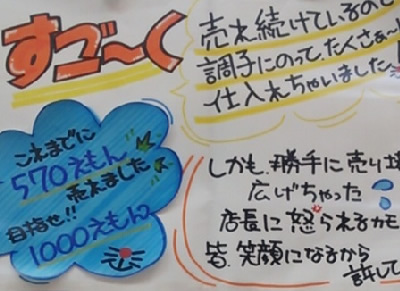 すご〜く
売れ続けているので
調子にのって、たくさぁ〜
仕入れちゃいました
これまでに
570えもん
売れました
目指せ!!
1000えもん
しかも、勝手に売り場
広げちゃった
店長に怒られるカモ
皆、笑顔になるから
許して